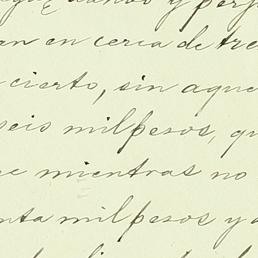 an en cerca de tre
cierto, sin aque
seis mil pesos, qu
e mientras no
nta mil pesos y a